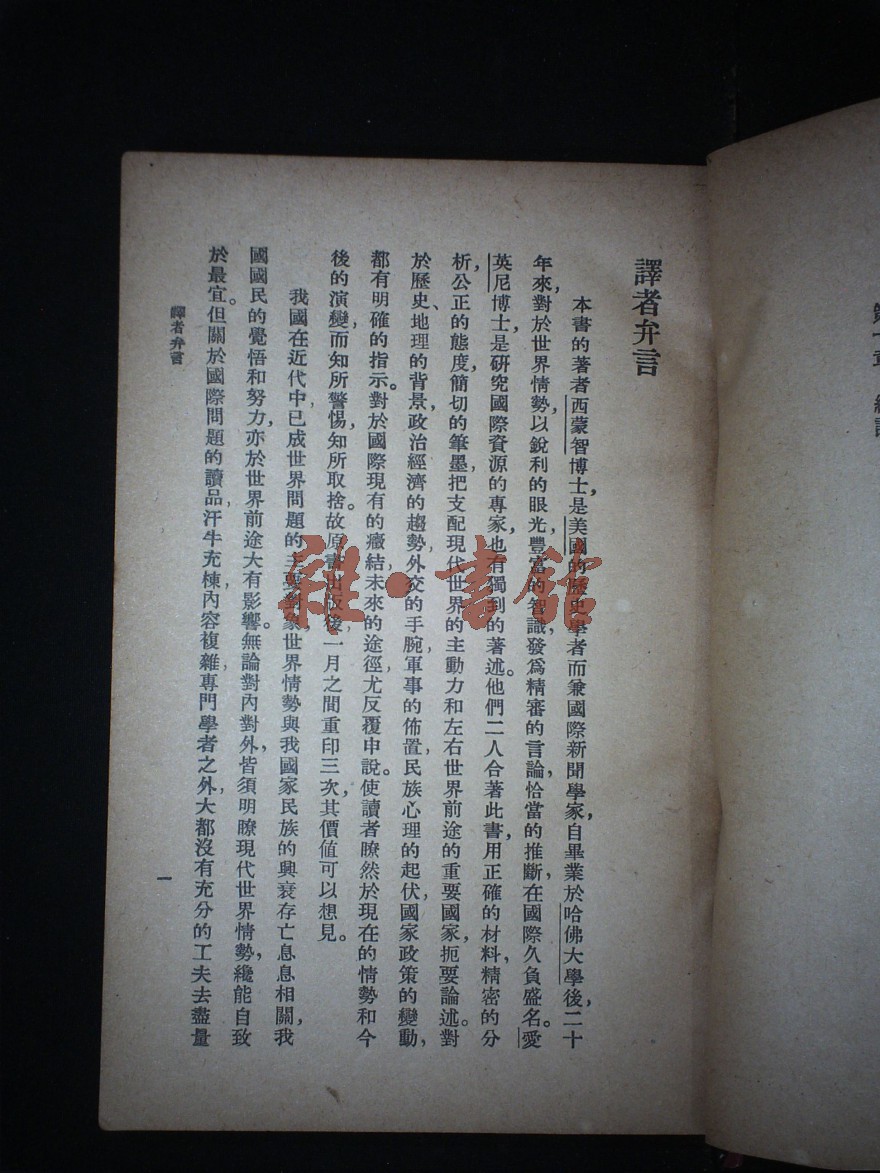 譯者弁言
本書的著者西蒙智博士，是美國的歷史學者而兼國際新聞學家，自畢業於哈佛大學後，二十
年來，對於世界情勢以銳利的眼光，豐富的智識，發爲精審的言論，恰當的推斷，在國際久負盛名。愛
英尼博士，是研究國際資源的專家，也有獨到的著述。他們二人合著此書，用正確的材料，精密的分
析，公正的態度，簡切的筆墨，把支配現代世界的主動力和左右世界前途的重要國家，扼要論述。對
於歷史、地理的背景，政治經濟的趨勢，外交的手腕，軍事的佈置，民族心理的起伏，國家政策的變動，
都有明確的指示。對於國際現有的癥結，未來的途徑，尤反覆申說。使讀者瞭然於現在的情勢和今
後的演變，而知所警惕，知所取捨。故原書出版後，一月之間重印三次，其價値可以想見。
我國在近代中，已成世界問題的主要對象，世界情勢與我國家民族的興衰存亡息息相關，我
國國民的覺悟和努力，亦於世界前途大有影響。無論對內對外，皆須明瞭現代世界情勢，纔能自致
於最宜。但關於國際問題的讀品，汗牛充棟，內容複雜，專門學者之外，大都沒有充分的工夫去盡量
譯者弁言
一
雜·書館